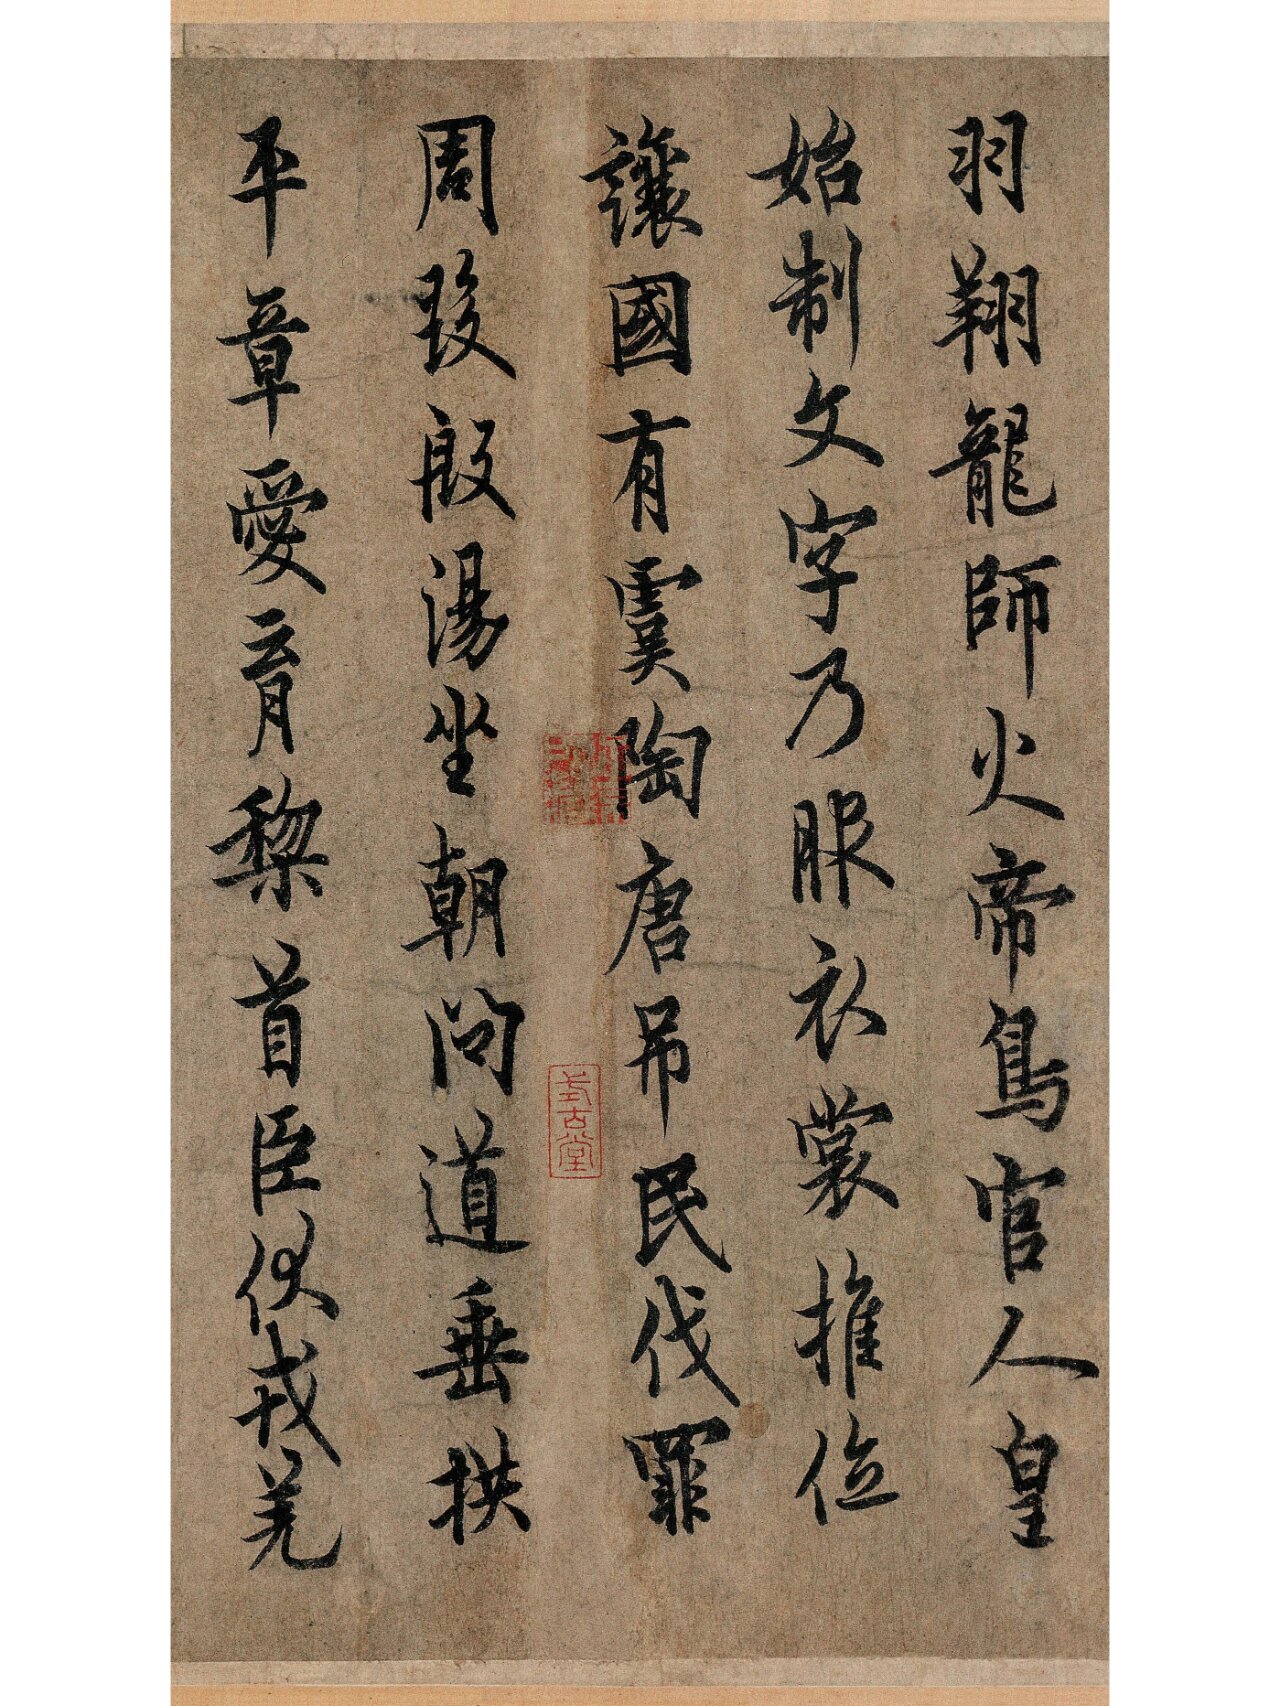 羽翔龍師火帝鳥官人皇
始制文字乃服衣裳推位
讓國有虞陶唐吊民伐罪
周發殷湯坐朝問道垂拱
平章愛育黎首臣伏戎羌
式古堂